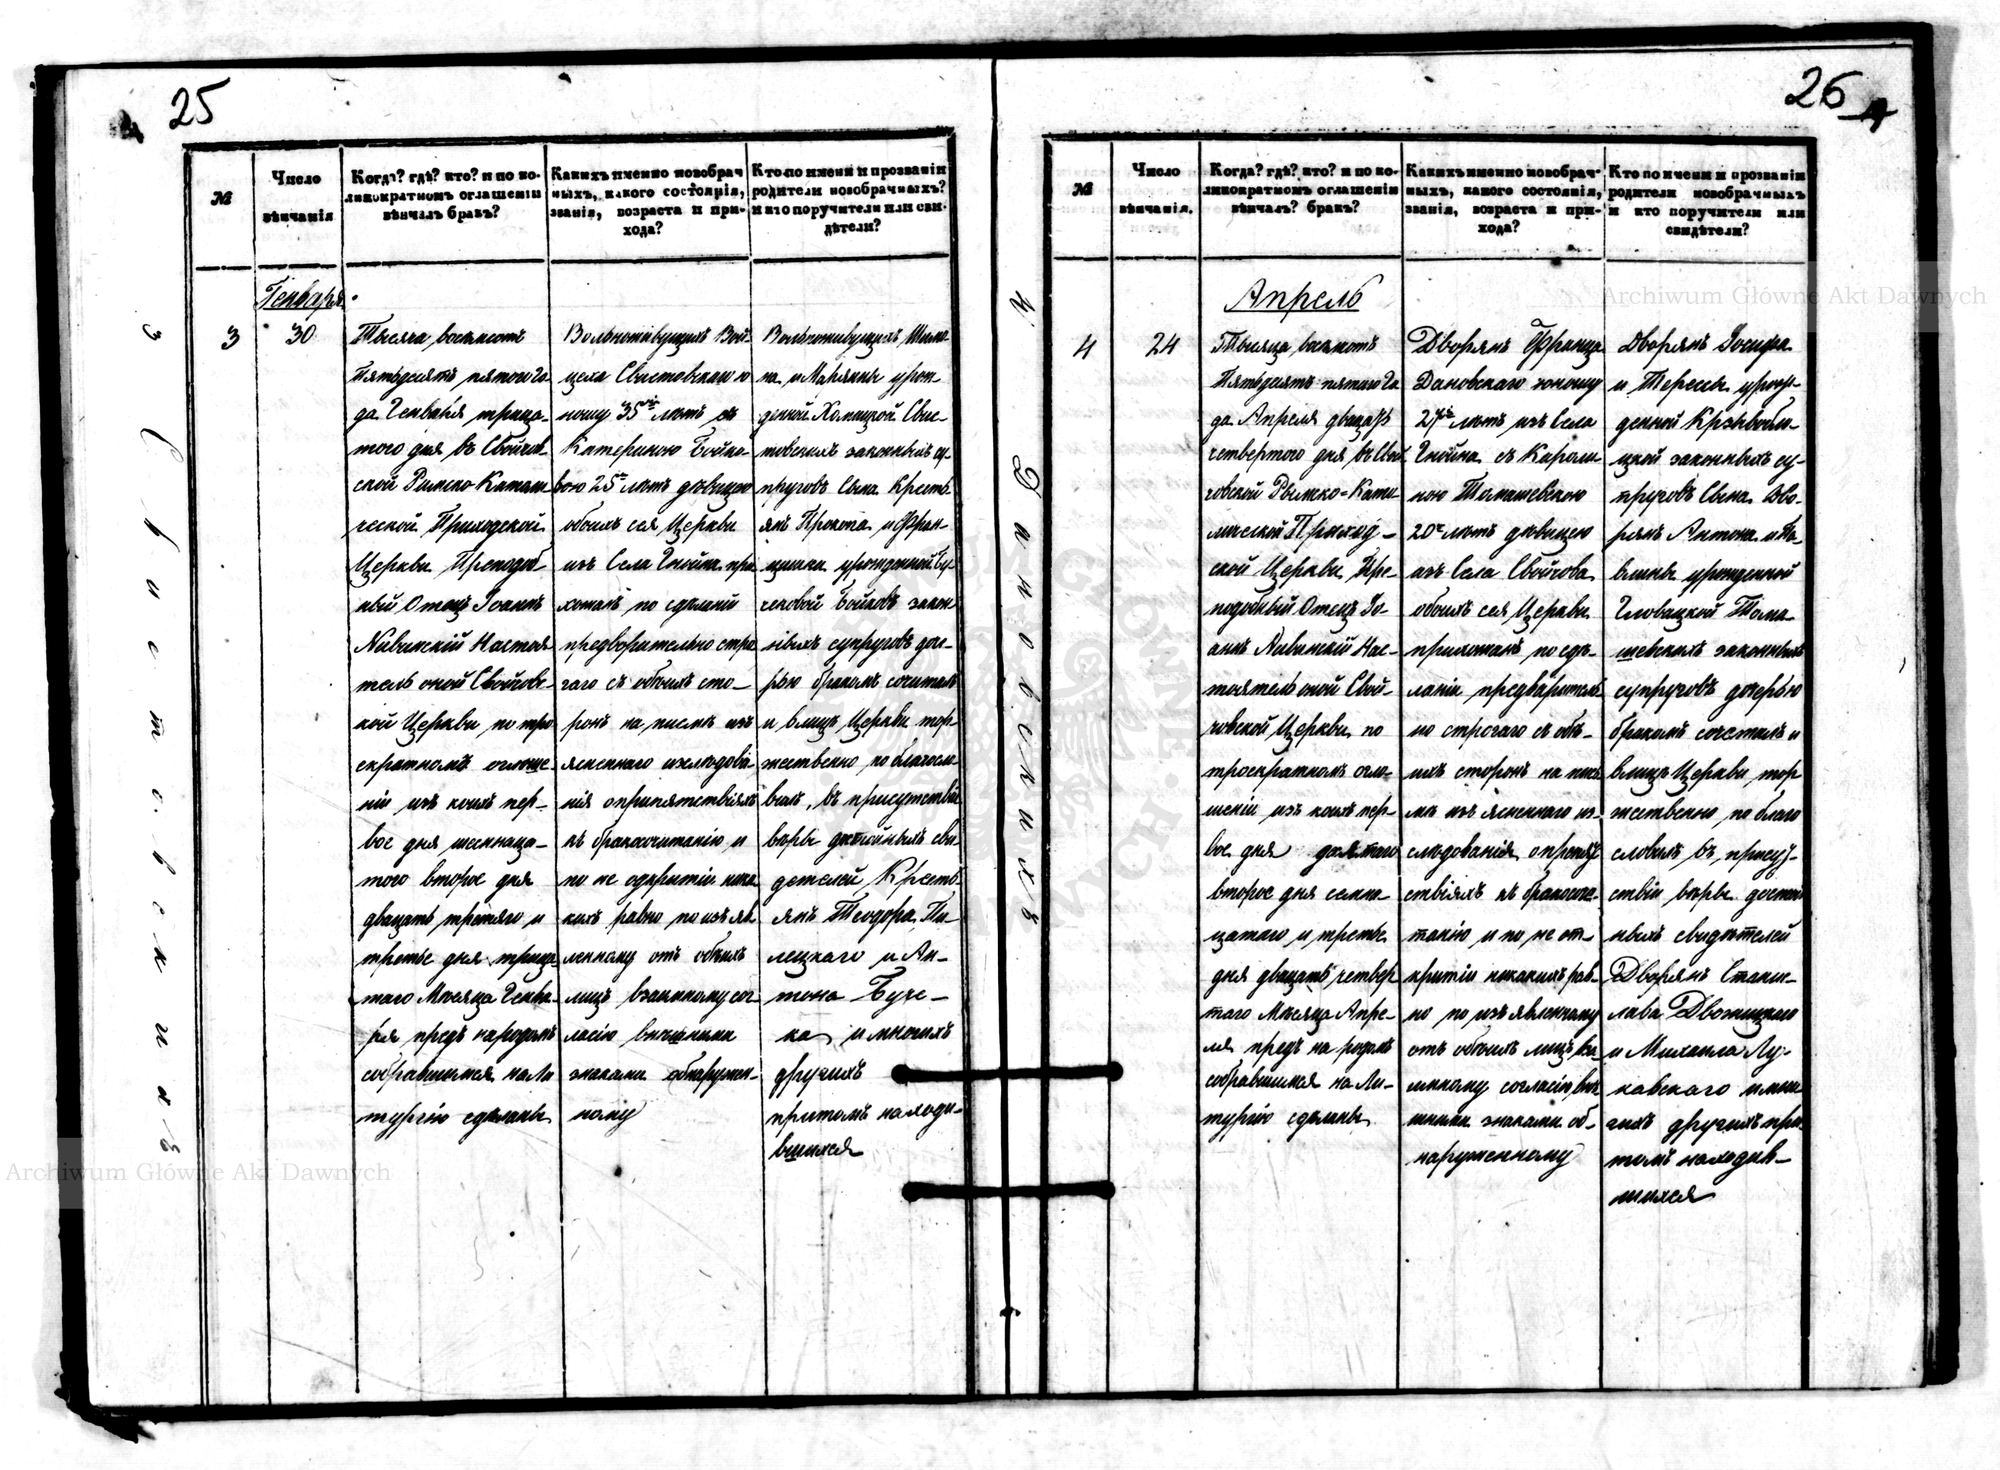 25
№
Число
вѣнчанія
Когда? гдѣ? кто? и по ко-
ликократномъ оглашеніи
вѣнчалъ бракъ?
Какихъ именно новобрач
ныхъ, какого состоянія,
званія, возраста и при-
хода?
Кто по имени и прозваніи
родители новобрачныхъ?
и кто поручители или сви-
дѣтели?
Генваря
3
30
Тысяча восемсотъ
Пятьдесятъ пятого Го
да Генваря трица-
того дня въ Свойчов-
ской Римско Катали
ческой Приходской
Церкви Преподоб-
ный Отецъ Іоаннъ
Настоя
тель оной Свойчовс-
кой Церкви по тро
екратномъ оглаше-
ніи изъ коихъ пер-
вое дня шестнаца-
того второе дня
двацать третяго и
третье дня трица-
таго Мѣсяца Генва-
ря предъ народомъ
собравшимся на Ли
тургію сдѣланы
Вольноживущихъ Вой-
цеха Свистовскаго ю
ношу 35 лѣтъ съ
Катериною Бойко
вою 25 лѣтъ дѣвицею
обоихъ сея Церкви
изъ Села Гнойна при
хожанъ по сдѣланіи
предварительно стро
гаго съ обоихъ сто-
ронъ на письмѣ изъ
ясненнаго изслѣдова-
нія о припятствіяхъ
къ бракосочитанію и
по не одкрытіи ника
кихъ равно по изъяв
ленному отъ обоихъ
лицъ взаимному сог-
ласію внѣшными
знаками обнаружен-
ному
Вольноживущихъ Шимо
на и Маріянны урож-
денной Хомицкой Свис-
товскихъ законныхъ су-
пруговъ Сына Кресть
янъ Прокопа и Фран-
цишки урожденной
Бойковъ закон
ныхъ супруговъ доч-
рью бракомъ сочеталъ
и влицѣ Церкви тор-
жественно, по благосло
вилъ, въ присутствіи
вѣры достойныхъ сви-
дѣтелей Кресть-
янъ Теодора
и Ан-
тона
и многихъ
другихъ
притомъ находи-
вшихся
3
С
в
и
с
т
о
в
с
к
и
х
ъ
26
№
Число
вѣнчанія.
Когда? гдѣ? кто? и по ко-
ликократномъ оглашеніи
вѣнчалъ? бракъ?
Какихъ именно новобрач-
ныхъ, какого состоянія,
званія, возраста и при-
хода?
Кто по имени и прозваніи
родители новобрачныхъ
и кто поручители или
свидѣтели?
Апрель
4
24
Тысяца восемсотъ
Пятьдесятъ пятаго Го
да Апреля двацать
четвертого дня въ Свой
човской Римско-Като-
лической Приход-
ской Церкви Пре-
подобный Отецъ Іо-
аннъ Нас-
тоятель оной Свой-
човской Церкви по
троекратномъ огла-
шеніи изъ коихъ пер-
вое дня
второе дня семна-
цатаго и третье
дня двацать четвер
таго Мѣсяца Апре-
ля предъ народомъ
собравшимся на Ли-
тургію сдѣланы
Дворянъ Франца
Дановскаго юношу
27 лѣтъ изъ Села
Гнойна съ Кароли
ною Томашевскою
20 лѣтъ дѣвицею
изъ Села Свойчова
обоихъ сея Церкви
прихожанъ по сдѣ-
ланіи предварітель
но строгаго съ обѣ-
ихъ сторонъ на пись
мѣ изъясненнаго из-
слѣдованія о препят
ствіяхъ къ бракосоче-
танію и по не от-
крытіи никакихъ рав-
но по изъявленному
отъ обоихъ лицъ вза-
имному согласію внѣ
шними знаками об-
наруженному
Дворянъ Іосифа
и Тересы урож-
денной
законныхъ су-
пруговъ Сына Дво-
рянъ Антона и Па-
влины урожденной
Гловацкой Тома-
шевскихъ законныхъ
супруговъ дочерью
бракомъ сочеталъ и
влицѣ Церкви тор
жественно, по благо
словилъ въ присут-
ствіи вѣры достой
ныхъ свидѣтелей
Дворянъ Стани-
лава
и Михаила Лу-
кавскаго и мно
гихъ другихъ при
томъ находив-
шихся
4
Д
а
н
о
в
с
к
и
х
ъ
Archiwum Główne Akt Dawnych
Archiwum Główne Akt Dawnych